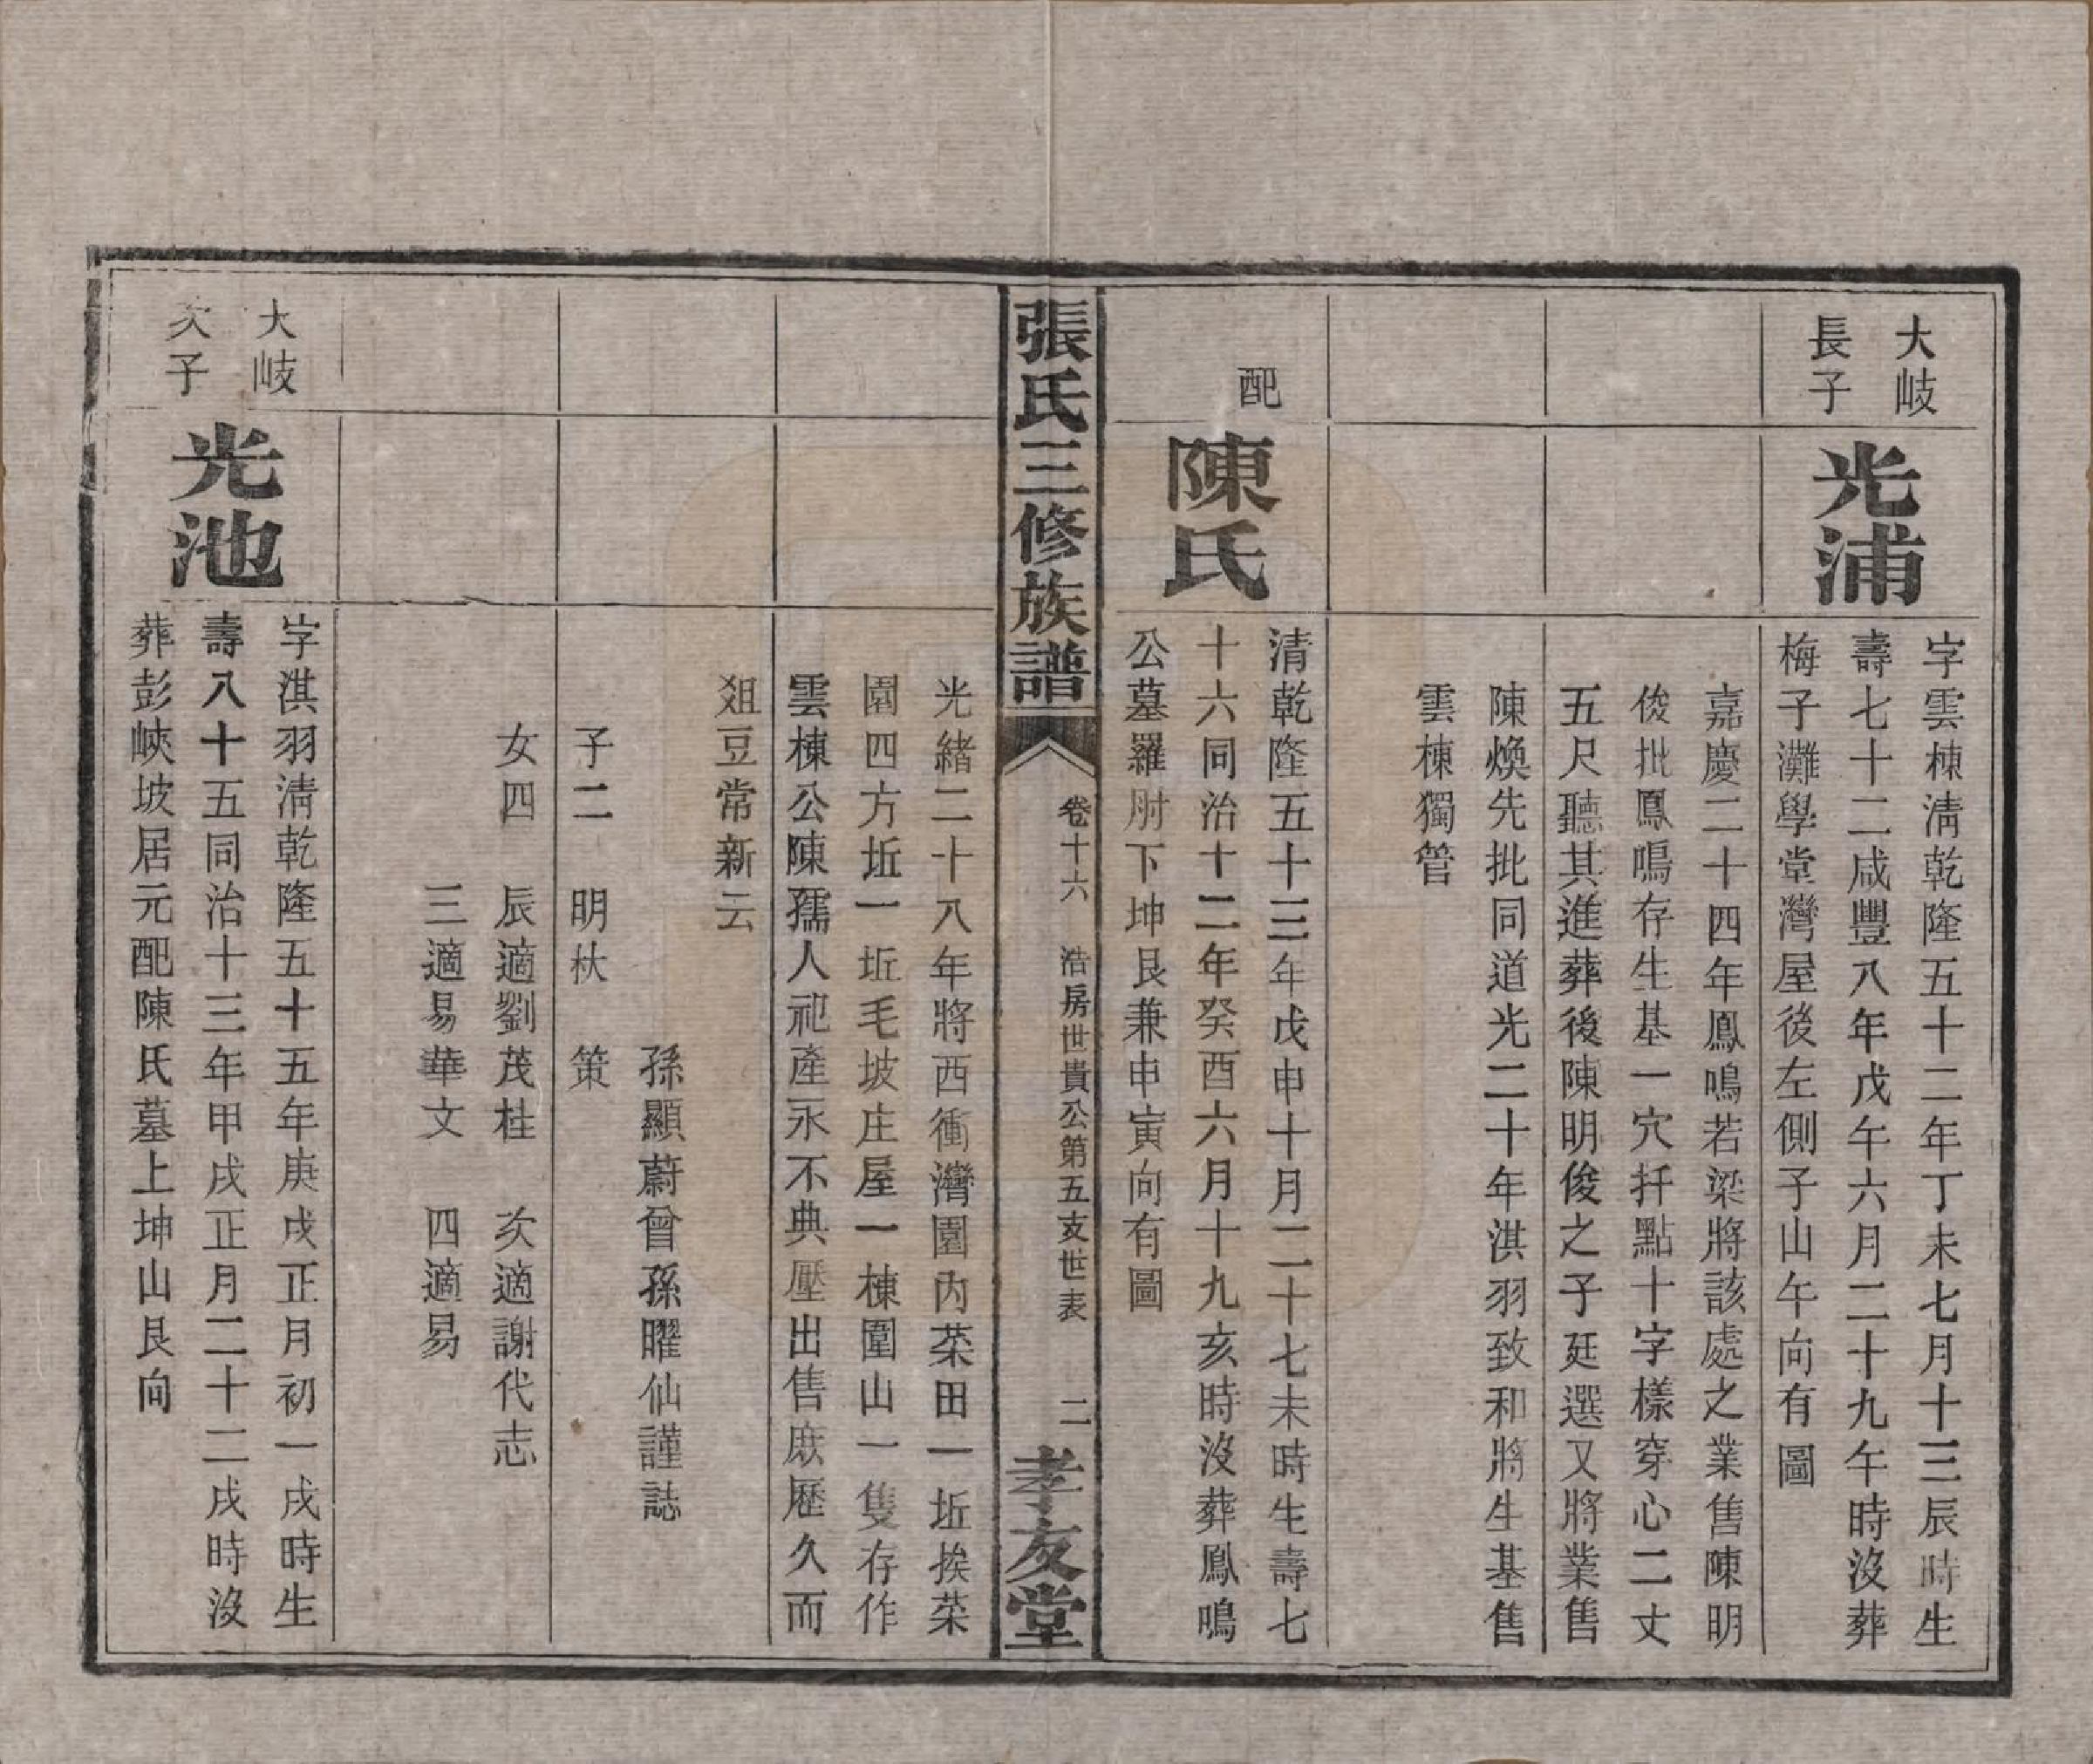 大岐
長子
光浦
字雲棟清乾隆五十二年丁未七月十三辰時生
壽七十二咸豐八年戊午六月二十九午時沒葬
梅子灘學堂灣屋後左側子山午向有圖
嘉慶二十四年鳳鳴若梁將該處之業售陳明
俊批鳳鳴存生基一穴扦點十字樣穿心二丈
五尺聽其進葬後陳明俊之子廷選又將業售
陳煥先批同道光二十年淇羽致和將生基售
雲棟獨管
配
陳氏
清乾隆五十三年戊申十月二十七未時生壽七
十六同治十二年癸酉六月十九亥時沒葬鳳鳴
公墓羅肘下坤艮兼申寅向有圖
張氏三修族譜
卷十六 浩房世貴公第五支世表 二
孝友堂
光緒二十八年將西衝灣園內菜田一坵挨菜
園四方坵一坵毛坡庄屋一棟圍山一隻存作
雲棟公陳孺人祀產永不典壓出售庶歷久而
俎豆常新云
孫顯蔚曾孫曜仙謹誌
子二 明杕 策
女四 辰適劉茂桂 次適謝代志
三適易華文 四適易
大岐
次子
光池
字淇羽清乾隆五十五年庚戌正月初一戌時生
壽八十五同治十三年甲戌正月二十二戌時沒
葬彭峽坡居元配陳氏墓上坤山艮向